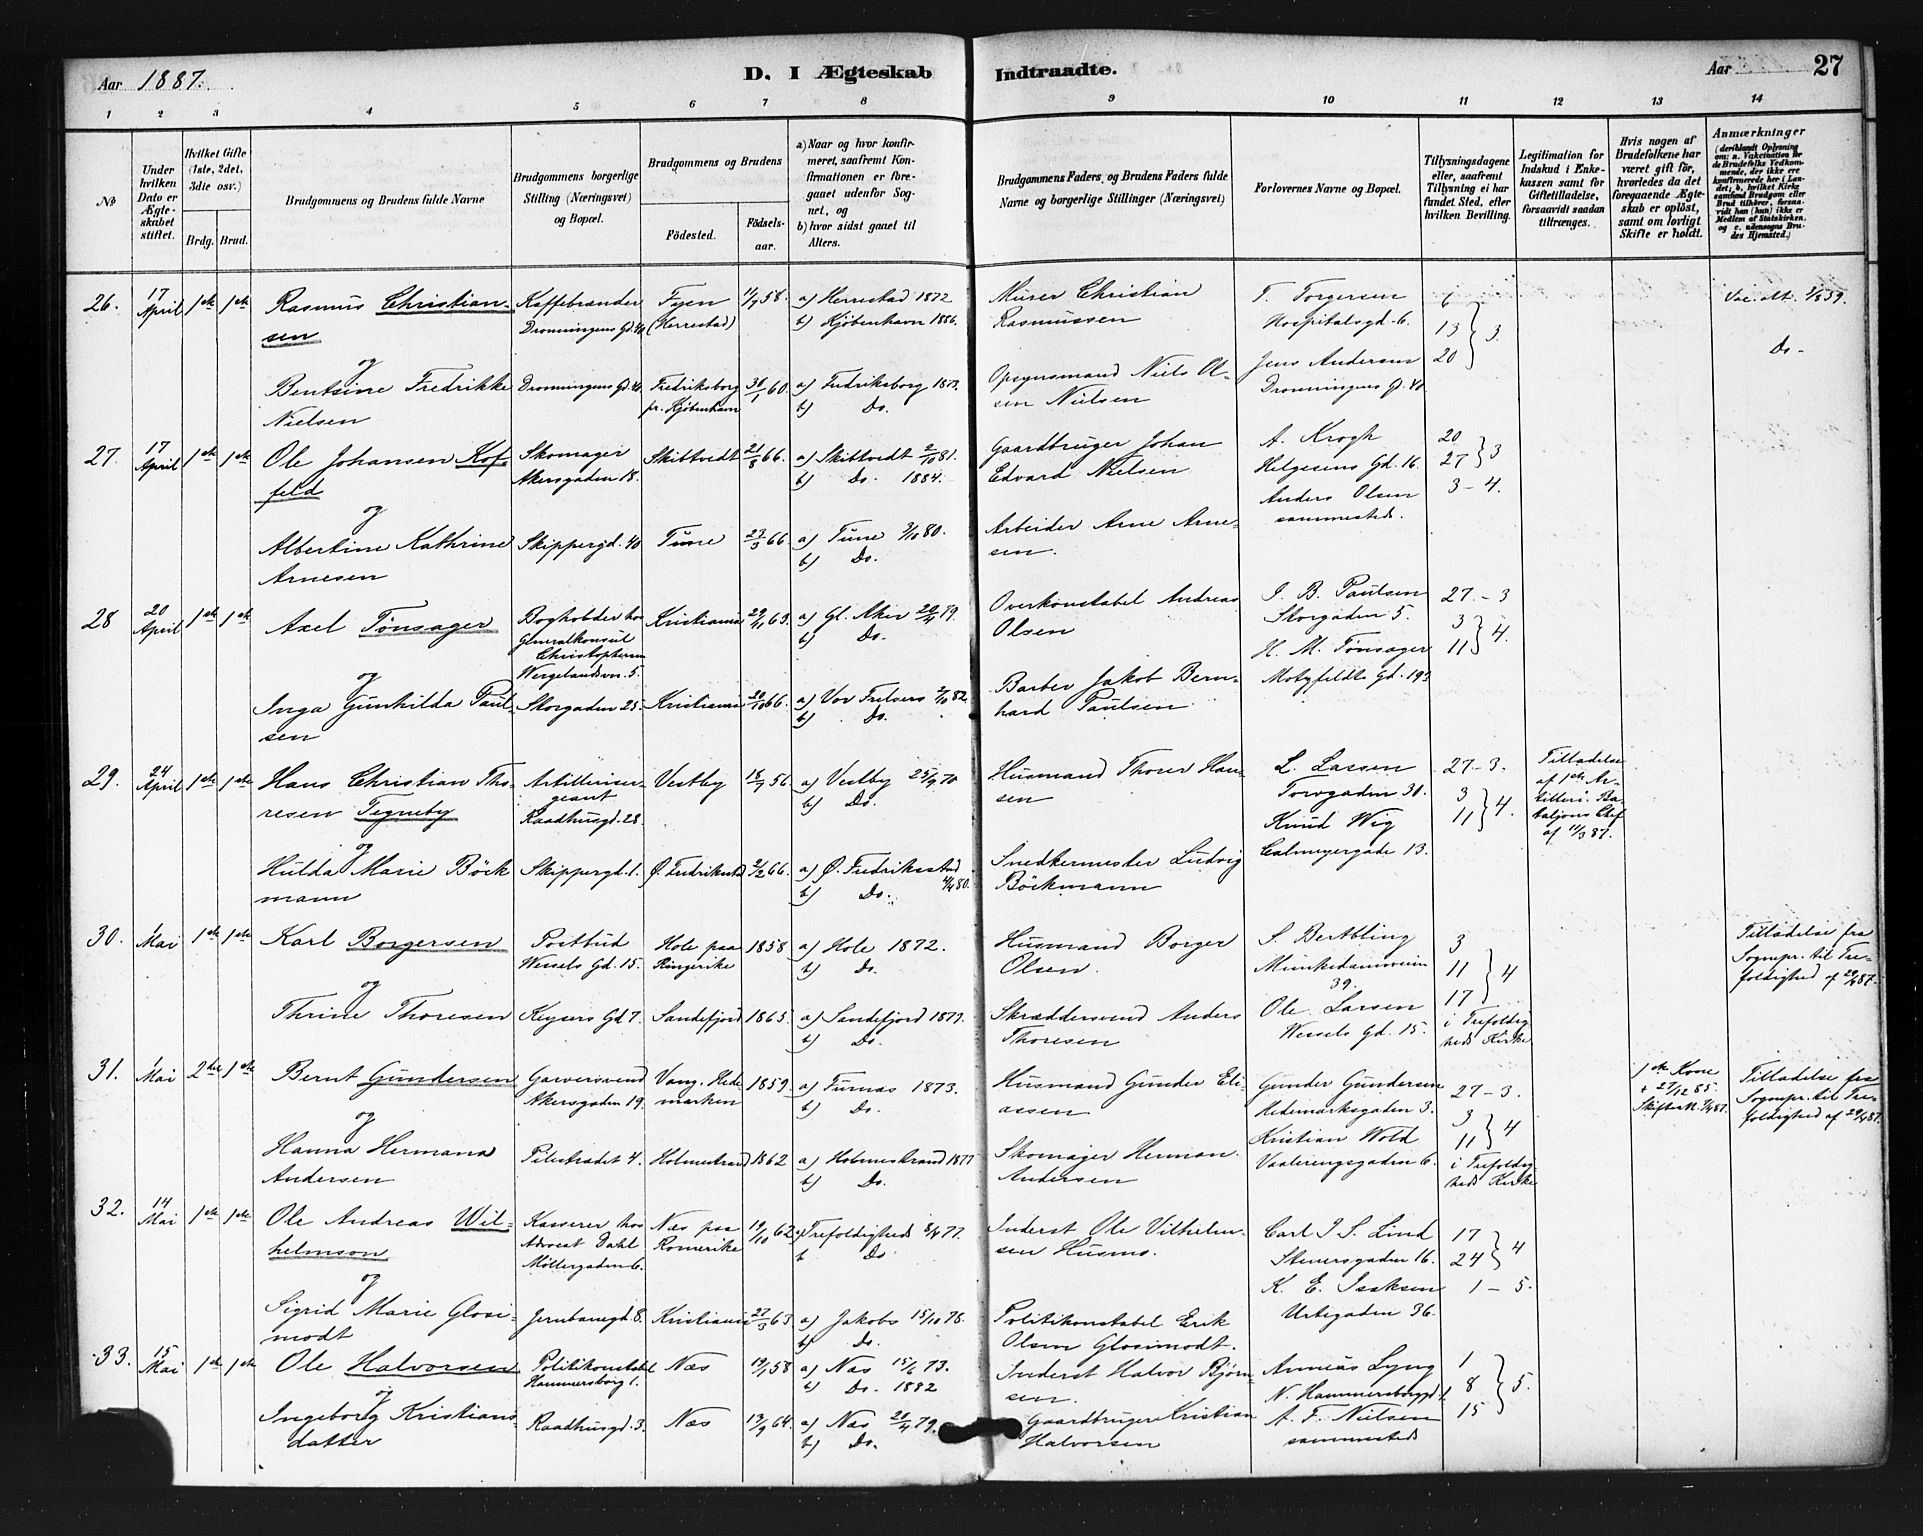 Aar 1887.
D. I Ægteskab Indtraadte.
Aar 27
1 2 3 4 5 6 7 8 9 10 11 12 13 14
No
Under hvilken Dato er Ægteskabet stiftet.
Hvilket Gifte (1ste, 2det, 3die osv.)
Brdg. Brud.
Brudgommens og Brudens fulde Navne
Brudgommens borgerlige Stilling (Næringsvei) og Bopæl.
Brudgommens og Brudens
Fødested.
Fødselsaar.
a) Naar og hvor konfirmeret, saafremt Konfirmationen er foregaaet udenfor Sognet, og
b) hvor sidst gaaet til Alters.
Brudgommens Faders, og Brudens Faders fulde Navne og borgerlige Stillinger (Næringsvei)
Forlovernes Navne og Bopæl.
Tillysningsdagene eller, saafremt Tillysning ei har fundet Sted, efter hvilken Bevilling.
Legitimation for Indskud i Enkekassen samt for Giftetilladelse, forsaavidt saadan tiltrænges.
Hvis nogen af Brudefolkene har været gift før, hvorledes da det foregaaende Ægteskab er opløst, samt om lovligt Skifte er holdt.
Anmærkninger
(deriblandt Oplysning om: a. Vakcination for de Brudefolks Vedkommende, der ikke ere konfirmerede her i Landet; b. hvilket Kirkesamfund Brudgom eller Brud tilhører, forsaavidt han (hun) ikke er Medlem af Statskirken, og c. udensogns Brudes Hjemsted.)
26. 17 April 1ste 1ste Rasmus Christiansen
Kaffebrænder Dronningens Gd. 40
Fyen (Herrestad) 11/9 58.
a) Herrestad 1872
b) Kjøbenhavn 1886.
Murer Christian Rasmussen
T. Torgersen Hospitalsgd. 6.
6 13 20 } 3.
Vac. att.
og
Bentsine Fredrikke Nielsen
Dronningens Gd. 40
Fredriksborg pr. Kjøbenhavn 30/1 60.
a) Fredriksborg
b) Do.
Opsynsmand Niels Olsen Nielsen
Jens Andersen Dronningens Gd. 40
Do.
27. 17 April 1ste 1ste Ole Johansen Koffeld
Skomager Akersgaden 18.
Skibtvedt 21/8 66.
a) Skibtvedt 2/10 81.
b) Do. 1884.
Gaardbruger Johan Edvard Nielsen
A. Krogh Helgesens Gd. 16.
20 27 } 3
3 - 4.
og
Albertine Kathrine Arnesen
Skippergd. 40
Tune 27/3 66.
a) Tune 3/10 80.
b) Do.
Arbeider Arne Arnesen.
Anders Olsen sammesteds.
28 20 April 1ste 1ste Axel Tønsager
Bogholder hos Generalkonsul Christophersen Wergelandsvn. 5.
Kristiania 29/11 63.
a) Gl. Aker 20/4 79.
b) Do.
Overkonstabel Andreas Olsen
J. B. Paulsen Storgaden 5.
27. - 3
3 11 } 4.
og
Inga Gunhilda Paulsen
Storgaden 25.
Kristiania 20/10 66.
a) Vor Frelsers 2/10 82.
b) Do.
Barber Jakob Bernhard Paulsen
H. M. Tønsager Motzfeldts Gd. 19
29. 24 April 1ste 1ste Hans Christian Thoresen Tegneby
Artillerisergeant Raadhusgd. 28.
Vestby 18/7 56
a) Vestby 25/9 70
b) Do.
Husmand Thorer Hansen
L. Larsen Torvgaden 31.
27 - 3.
3 11 } 4.
Tilladelse af 1ste Artilleri. Bataljons Chef af 11/3 87.
og
Hulda Marie Böckmann
Skippergd. 1.
Ø. Fredrikstad 2/2 66.
a) Ø. Fredriksstad 4/4 80.
b) Do.
Snedkermester Ludvig Böckmann
Knud Wig Calmeyergade 13.
30. 1 Mai 1ste 1ste Karl Borgersen
Postbud Wessels Gd. 15.
Hole paa Ringerike 1858
a) Hole 1872.
b) Do.
Husmand Borger Olsen.
S. Bertbling Munkedamsveien 39.
3 11 17 } 4
i Trefoldigheds Kirke
Tilladelse fra Sognepr. til Trefoldighed af 29/4 87.
og
Thrine Thoresen
Keysers Gd. 7.
Sandefjord 1865.
a) Sandefjord
b) Do.
Skræddersvend Anders Thoresen
Ole Larsen Wessels Gd. 15.
31. 1 Mai 2den 1ste Bernt Gundersen
Garversvend Akersgaden 19.
Vang. Hedemarken 1859.
a) Furnæs 1873.
b) Do.
Husmand Gunder Eliassen
Gunder Gundersen Hedemarksgaden 3.
27 - 3.
3 11 } 4
i Trefoldigheds Kirke
1ste Kone + 27/12 85.
Skifteatt.
Tilladelse fra Sognepr. til Trefoldighed af 29/4 87.
og
Hanna Hermana Andersen
Pilestrædet 4.
Holmestrand 1862
a) Holmestrand 1877
b) Do.
Skomager Herman Andersen
Kristian Wold Vaalerengsgaden 6.
32. 14 Mai 1ste 1ste Ole Andreas Wilhelmson
Kasserer hos Advocat Dahl Møllergaden 6.
Næs paa Romerike 19/10 62.
a) Trefoldigheds 8/4 77.
b Do
Inderst Ole Vilhelmsen Husmo.
Carl J. S. Lind Stenersgaden 16.
17 24 } 4
1 - 5.
og
Sigrid Marie Glosimodt
Jernbanegd. 8.
Kristiania 27/3 63
a) Jakobs 15/10 76.
b) Do.
Politikonstabel Erik Olsen Glosimodt.
K. E. Isaksen Urtegaden 36.
33. 15 Mai 1ste 1ste Ole Halvorsen
Politikonstabel Hammersborg 1.
Næs 19/1 58
a) Næs 15/6 73.
b) Do. 1882
Inderst Halvor Bjørnsen.
Annæus Lyng N. Hammersborggd. 1
1 8 15 } 5.
og
Ingeborg Kristiansdatter
Raadhusgd. 3.
Næs 13/9 64.
a) Næs 20/4 79.
b) Do.
Gaardbruger Kristian Halvorsen
A. F. Nielsen sammesteds